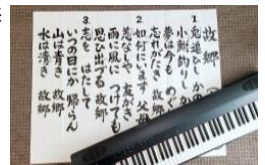 故郷
1. 兎追いし かの
小鮒釣りし か
夢は今も めぐ
忘れがたき 故郷
2. 如何にいます 父母
恙なしや 友がき
雨に風に つけても
思ひ出づる 故郷
3. 志を はたして
いつの日にか 帰らん
山は青き 故郷
水は清き 故郷